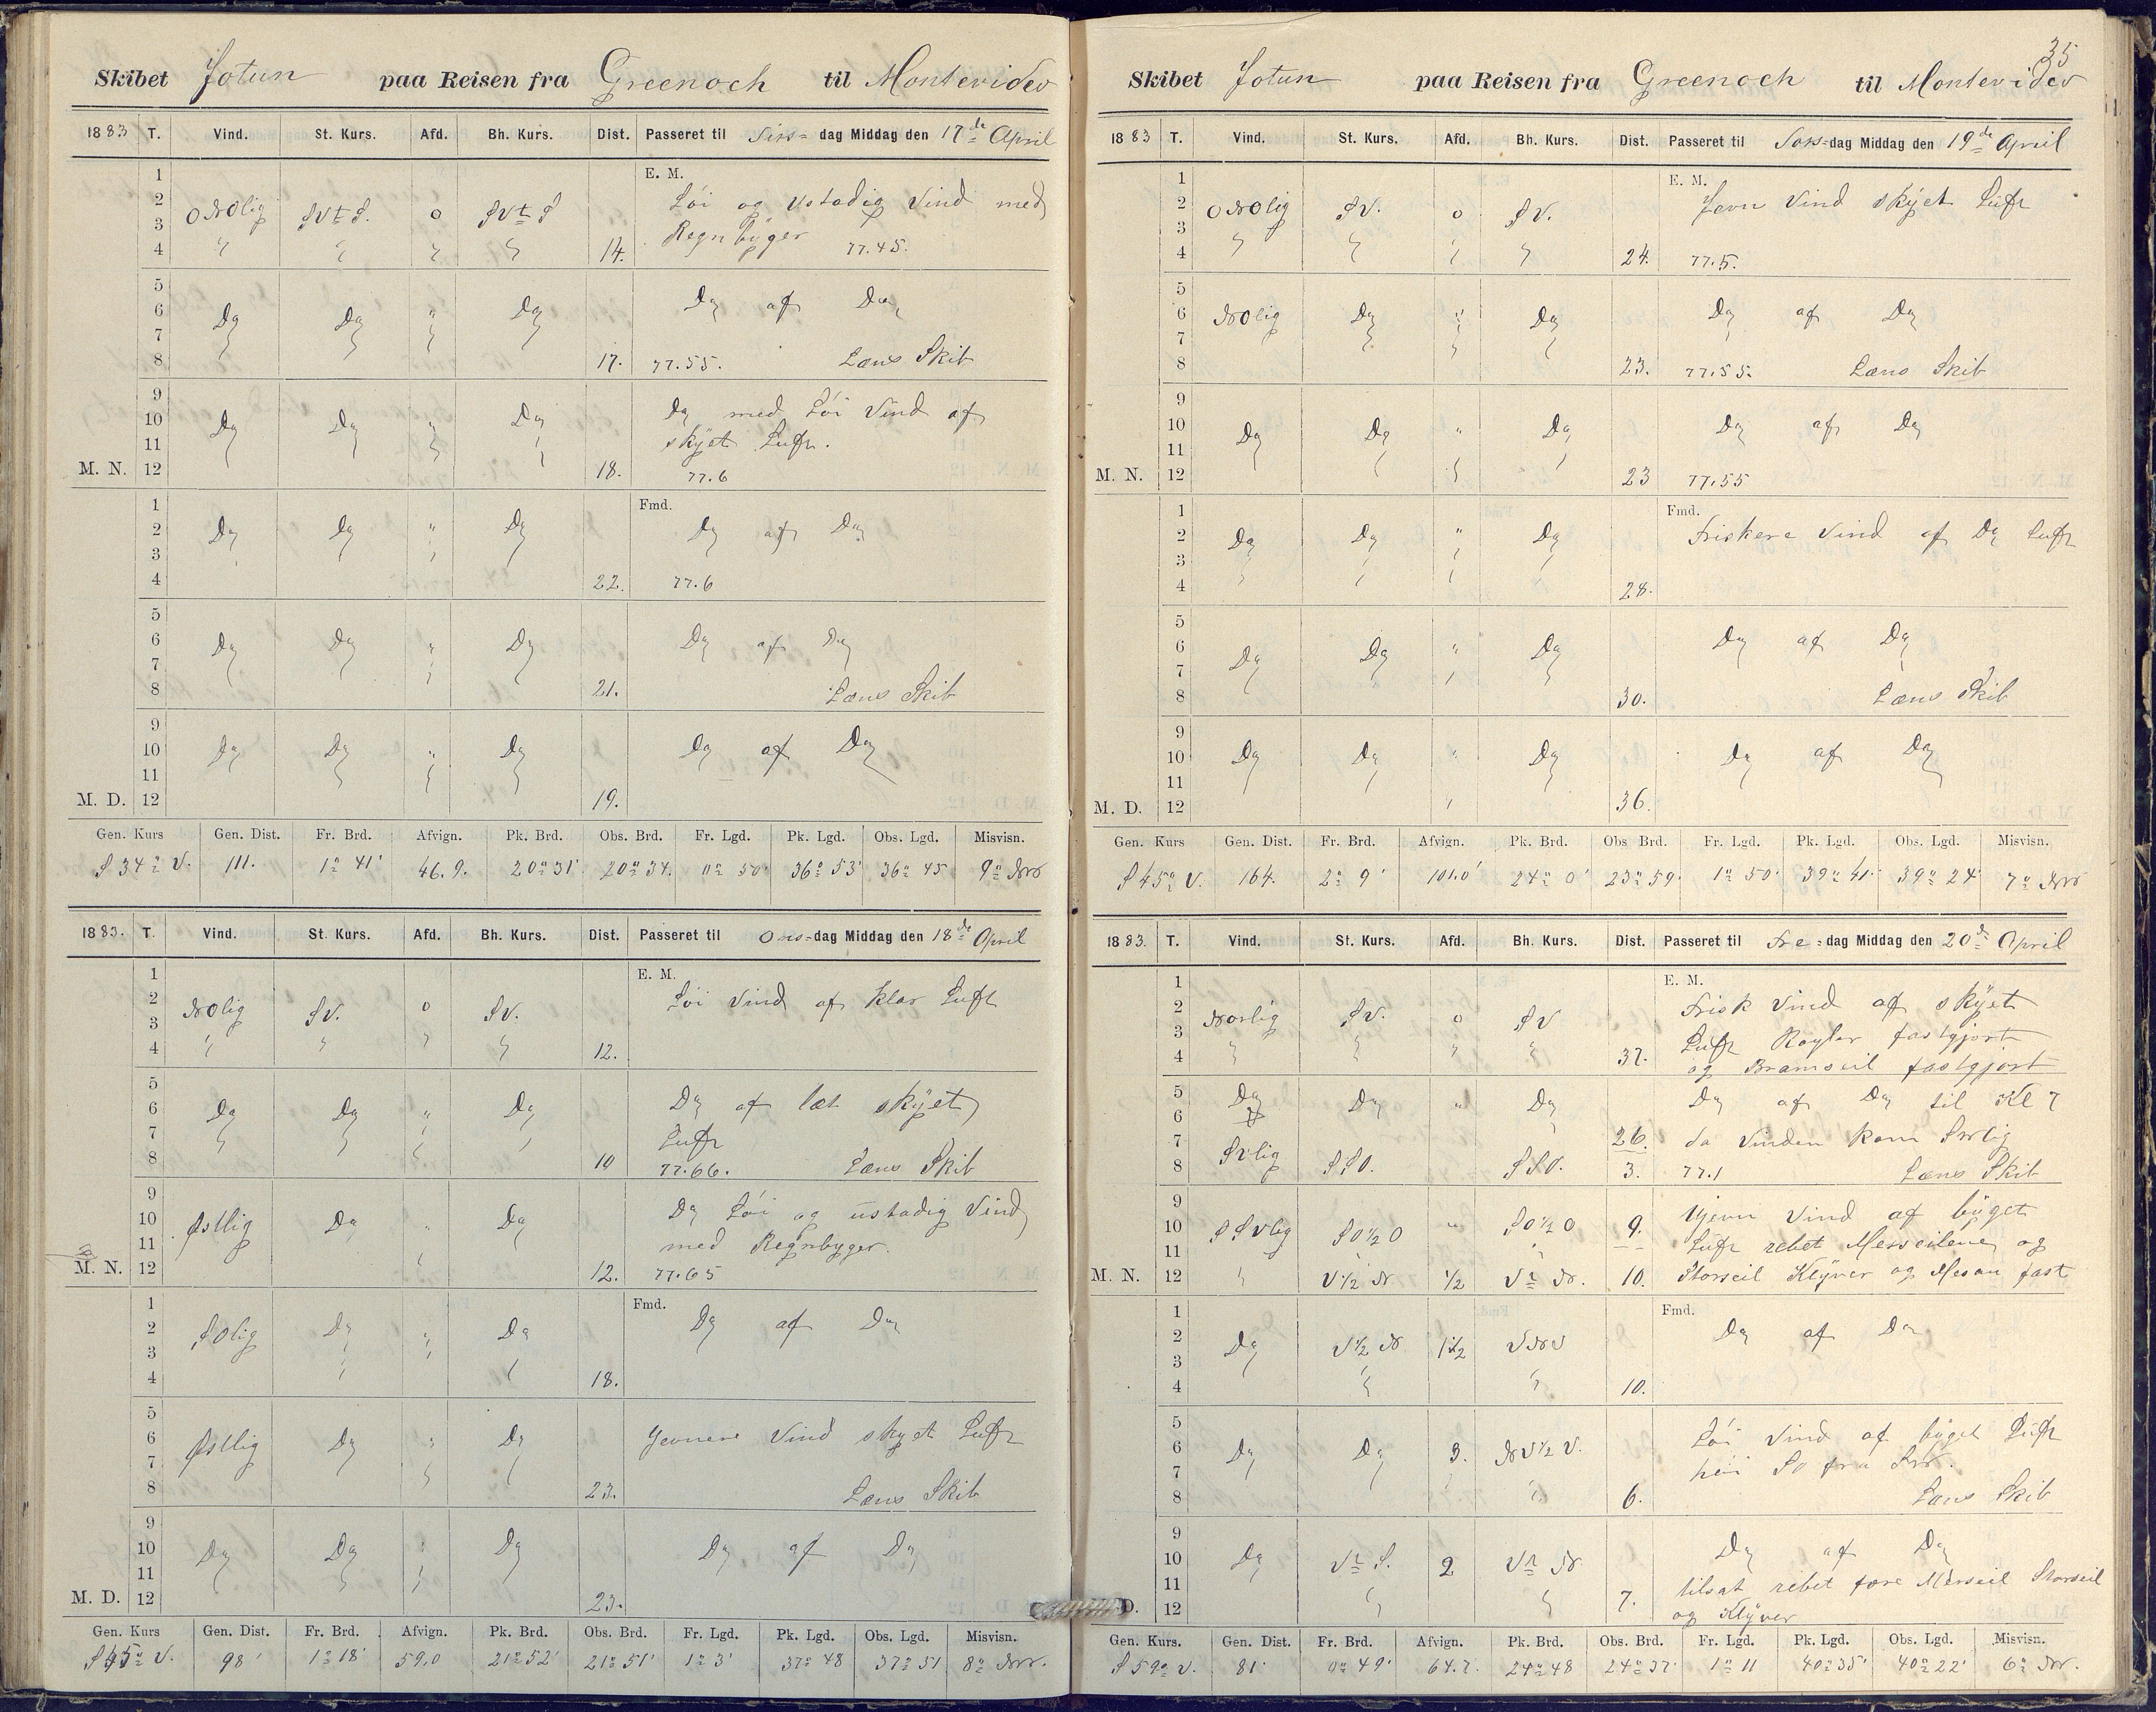 Skibet Jotun paa Reisen fra Greenoch til Montevideo
1883 T. Vind. St. Kurs. Afd. Bh. Kurs. Dist. Passeret til Tirs- dag Middag den 17de April
1 E. M.
2 ONOlig SVtS. 0 SVtS Löi og ustadig Vind med
3 Regnbyger 77.45.
4 14.
5
6 Do Do " Do Do af Do
7
8 17. 77.55. Læns Skib
9
10 Do Do " Do Do med Löi Vind af
11 skyet Luft.
M. N. 12 18. 77.6
1 Fmd.
2 Do Do " Do Do af Do
3
4 22. 77.6
5
6 Do Do " Do Do af Do
7
8 21. Læns Skib
9
10 Do Do " Do Do af Do
11
M. D. 12 19.
Gen. Kurs Gen. Dist. Fr. Brd. Afvign. Pk. Brd. Obs. Brd. Fr. Lgd. Pk. Lgd. Obs. Lgd. Misvisn.
S 34° V. 111. 1° 41' 46.9. 20° 31' 20° 34. 0° 50' 36° 53' 36° 45 9° NV
1883. T. Vind. St. Kurs. Afd. Bh. Kurs. Dist. Passeret til Ons-dag Middag den 18de April
1 E. M.
2 NOlig SV. 0 SV. Löi Vind af klar Luft
3
4 12.
5
6 Do Do " Do Do af let skyet
7 Luft
8 10 77.66. Læns Skib
9
10 Østlig Do " Do Do Löi og ustadig Vind
11 med Regnbyger.
M. N. 12 12. 77.65
1 Fmd.
2 SOlig Do " Do Do af Do
3
4 18.
5
6 Østlig Do " Do Jevnere Vind skyet Luft
7
8 23. Læns Skib
9
10 Do Do " Do Do af Do
11
M. D. 12 23.
Gen. Kurs Gen. Dist. Fr. Brd. Afvign. Pk. Brd. Obs. Brd. Fr. Lgd. Pk. Lgd. Obs. Lgd. Misvisn.
S 45° V. 98' 1° 18' 59.0 21° 52' 21° 51' 1° 3' 37° 48 37° 51 8° NV.
35
Skibet Jotun paa Reisen fra Greenoch til Montevideo
1883 T. Vind. St. Kurs. Afd. Bh. Kurs. Dist. Passeret til Tors-dag Middag den 19de April
1 E. M.
2 ONOlig SV. 0 SV. Jevn Vind skyet Luft
3
4 24. 77.5.
5
6 NOlig Do " Do Do af Do
7
8 23. 77.55. Læns Skib
9
10 Do Do " Do Do af Do
11
M. N. 12 23 77.55
1 Fmd.
2 Do Do " Do Friskere Vind af Do Luft
3
4 28.
5
6 Do Do " Do Do af Do
7
8 30. Læns Skib
9
10 Do Do " Do Do af Do
11
M. D. 12 36.
Gen. Kurs Gen. Dist. Fr. Brd. Afvign. Pk. Brd. Obs Brd. Fr. Lgd. Pk. Lgd. Obs. Lgd. Misvisn.
S 45° V. 164. 2° 9' 101.0' 24° 0' 23° 59' 1° 50' 39° 41' 39° 24' 7° NV
1883. T. Vind. St. Kurs. Afd. Bh. Kurs. Dist. Passeret til Fre-dag Middag den 20de April
1 E. M.
2 Norlig SV. 0 SV Frisk Vind af skyet
3 Luft Røyler fastgjort
4 37. og Bramseil fastgjort
5 Do Do " Do Do af Do til Kl 7
6
7 26. da Vinden kom
8 SVlig SSO. SSO. 3. 77.1 Læns Skib
9 Ujevn Vind af byget
10 SSVlig SO½O " SO½O 9. Luft rebet Merseilene og
11
M. N. 12 V½N ½ VtN. 10. Storseil Klyver og Mesan fast
1 Fmd.
2 Do V½N 1½ VNV Do af Do
3
4 10.
5 Löi Vind af byget Luft
6 Do Do 3. NV½V. höi Sö fra
7
8 6. Læns Skib
9
10 Do VtS. 2 VtN Do af Do
11 tilsat rebet fore Merseil Storseil
D. 12 7. og Klyver
Gen. Kurs. Gen. Dist. Fr. Brd. Afvign. Pk. Brd. Obs. Brd. Fr. Lgd. Pk. Lgd. Obs. Lgd. Misvisn.
S 59° V. 81' 0° 49' 64.7. 24° 48 24° 37' 1° 11 40° 35' 40° 22' 6° NV.